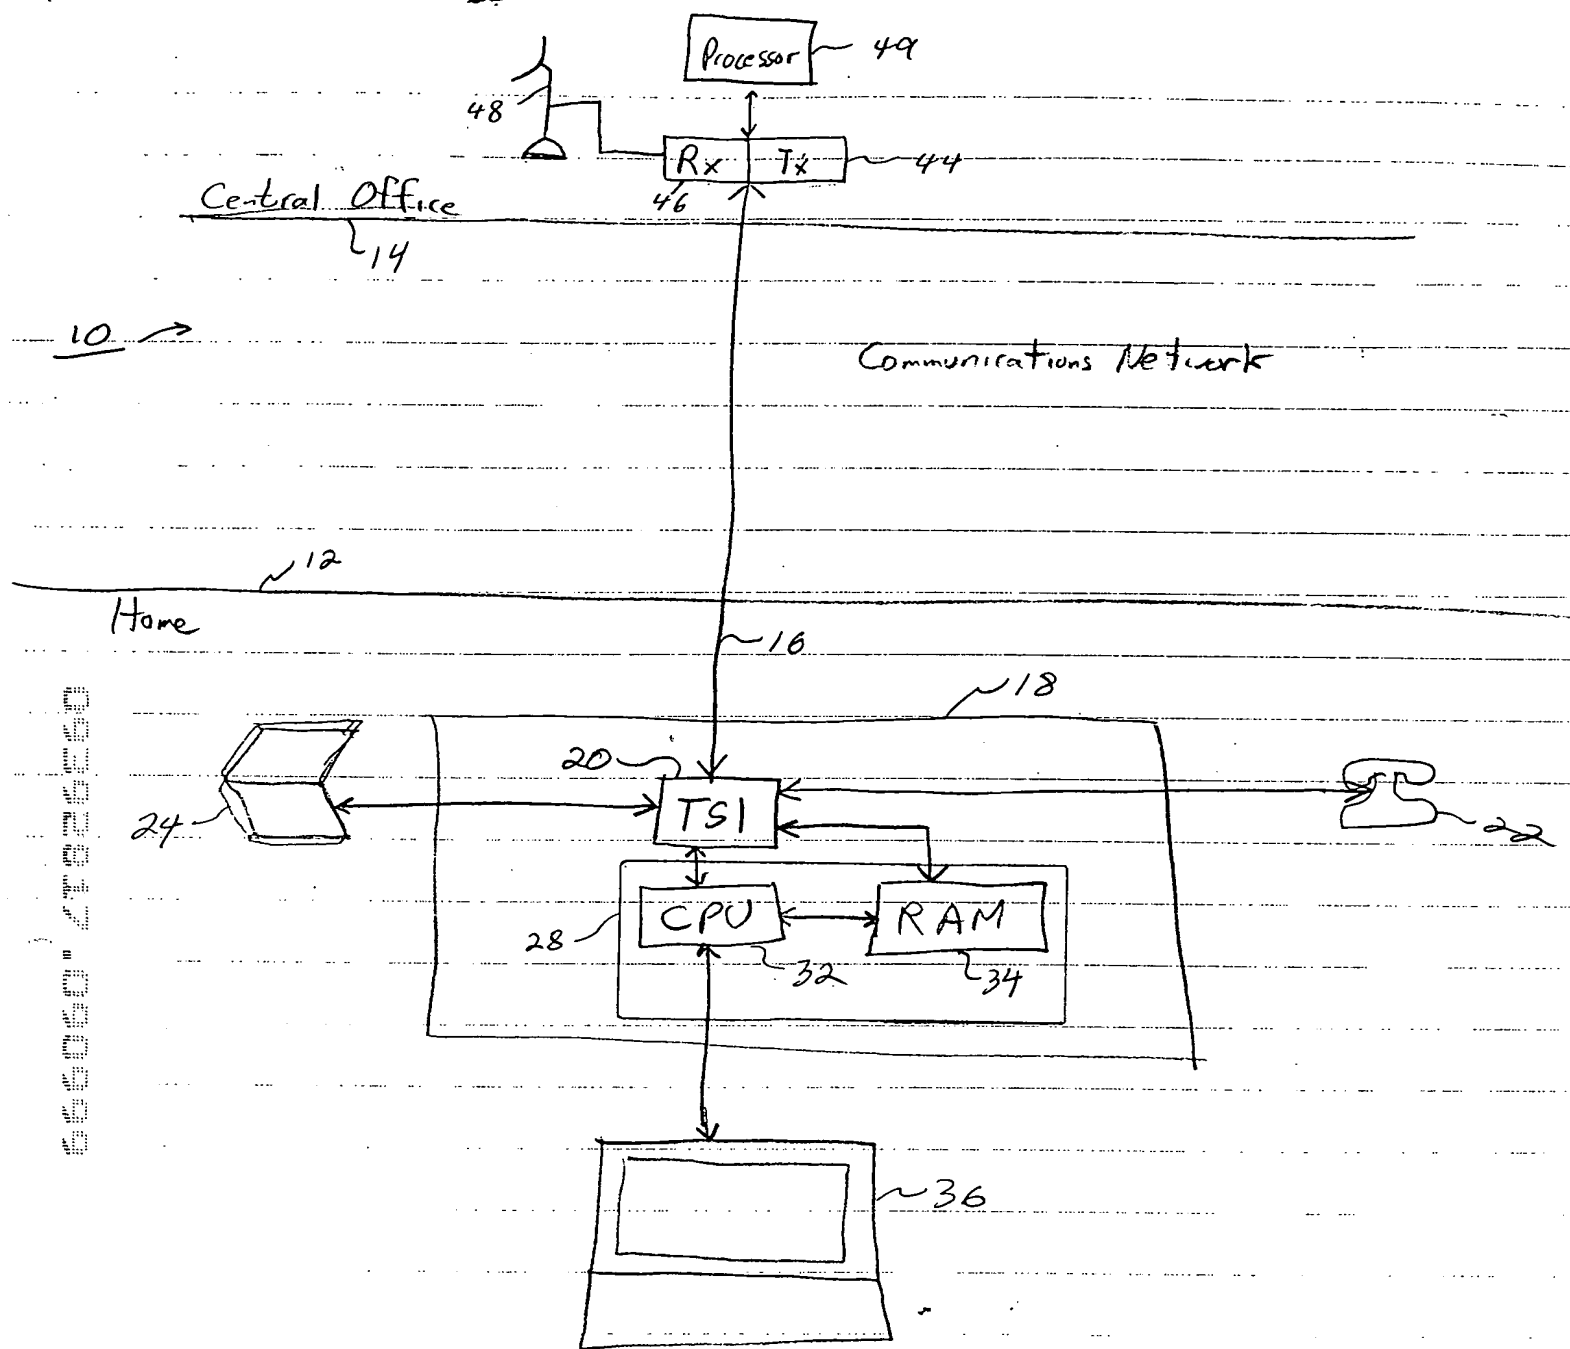 Processor 49
48
Rx Tx 44
46
Central Office
14
10
Communications Network
12
Home
16
18
20
TSI
24
22
CPU RAM
28
32 34
36